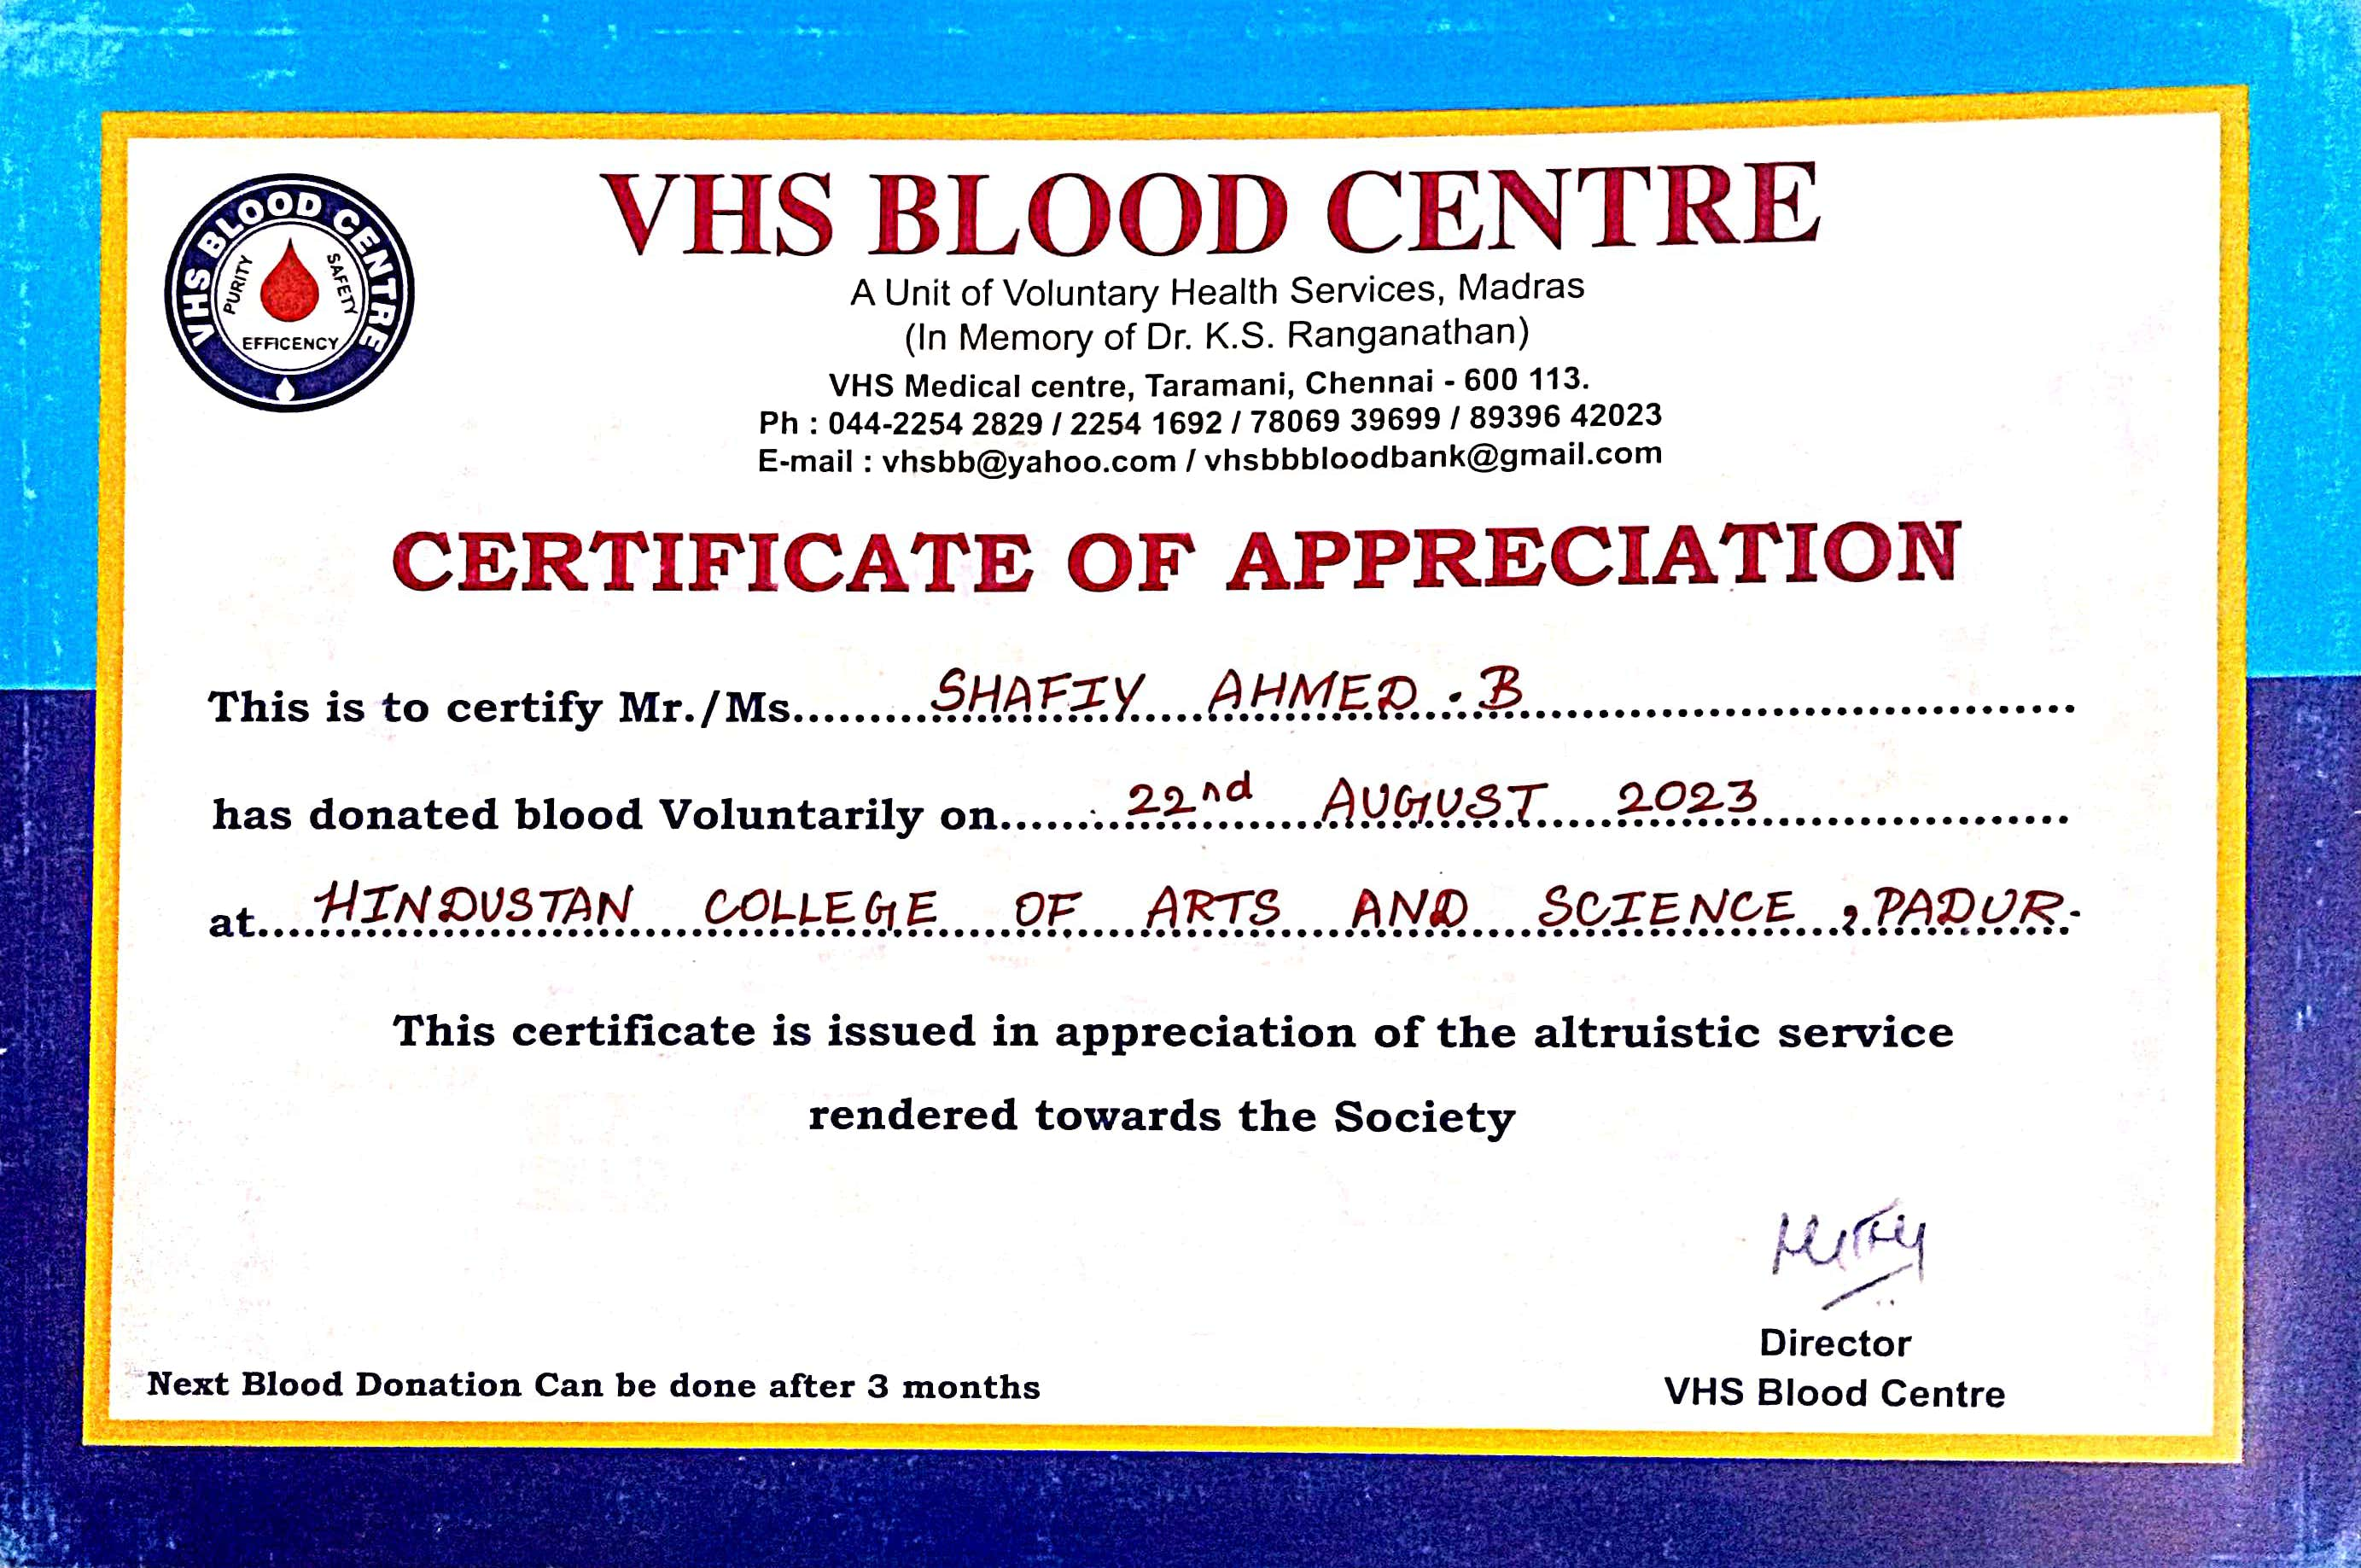 VHS BLOOD CENTRE
PURITY
SAFETY
EFFICENCY
VHS BLOOD CENTRE
A Unit of Voluntary Health Services, Madras
(In Memory of Dr. K.S. Ranganathan)
VHS Medical centre, Taramani, Chennai - 600 113.
Ph : 044-2254 2829 / 2254 1692 / 78069 39699 / 89396 42023
E-mail : vhsbb@yahoo.com / vhsbbbloodbank@gmail.com
CERTIFICATE OF APPRECIATION
This is to certify Mr./Ms. SHAFIY AHMED . B
has donated blood Voluntarily on 22nd AUGUST 2023
at HINDUSTAN COLLEGE OF ARTS AND SCIENCE, PADUR.
This certificate is issued in appreciation of the altruistic service
rendered towards the Society
Director
VHS Blood Centre
Next Blood Donation Can be done after 3 months